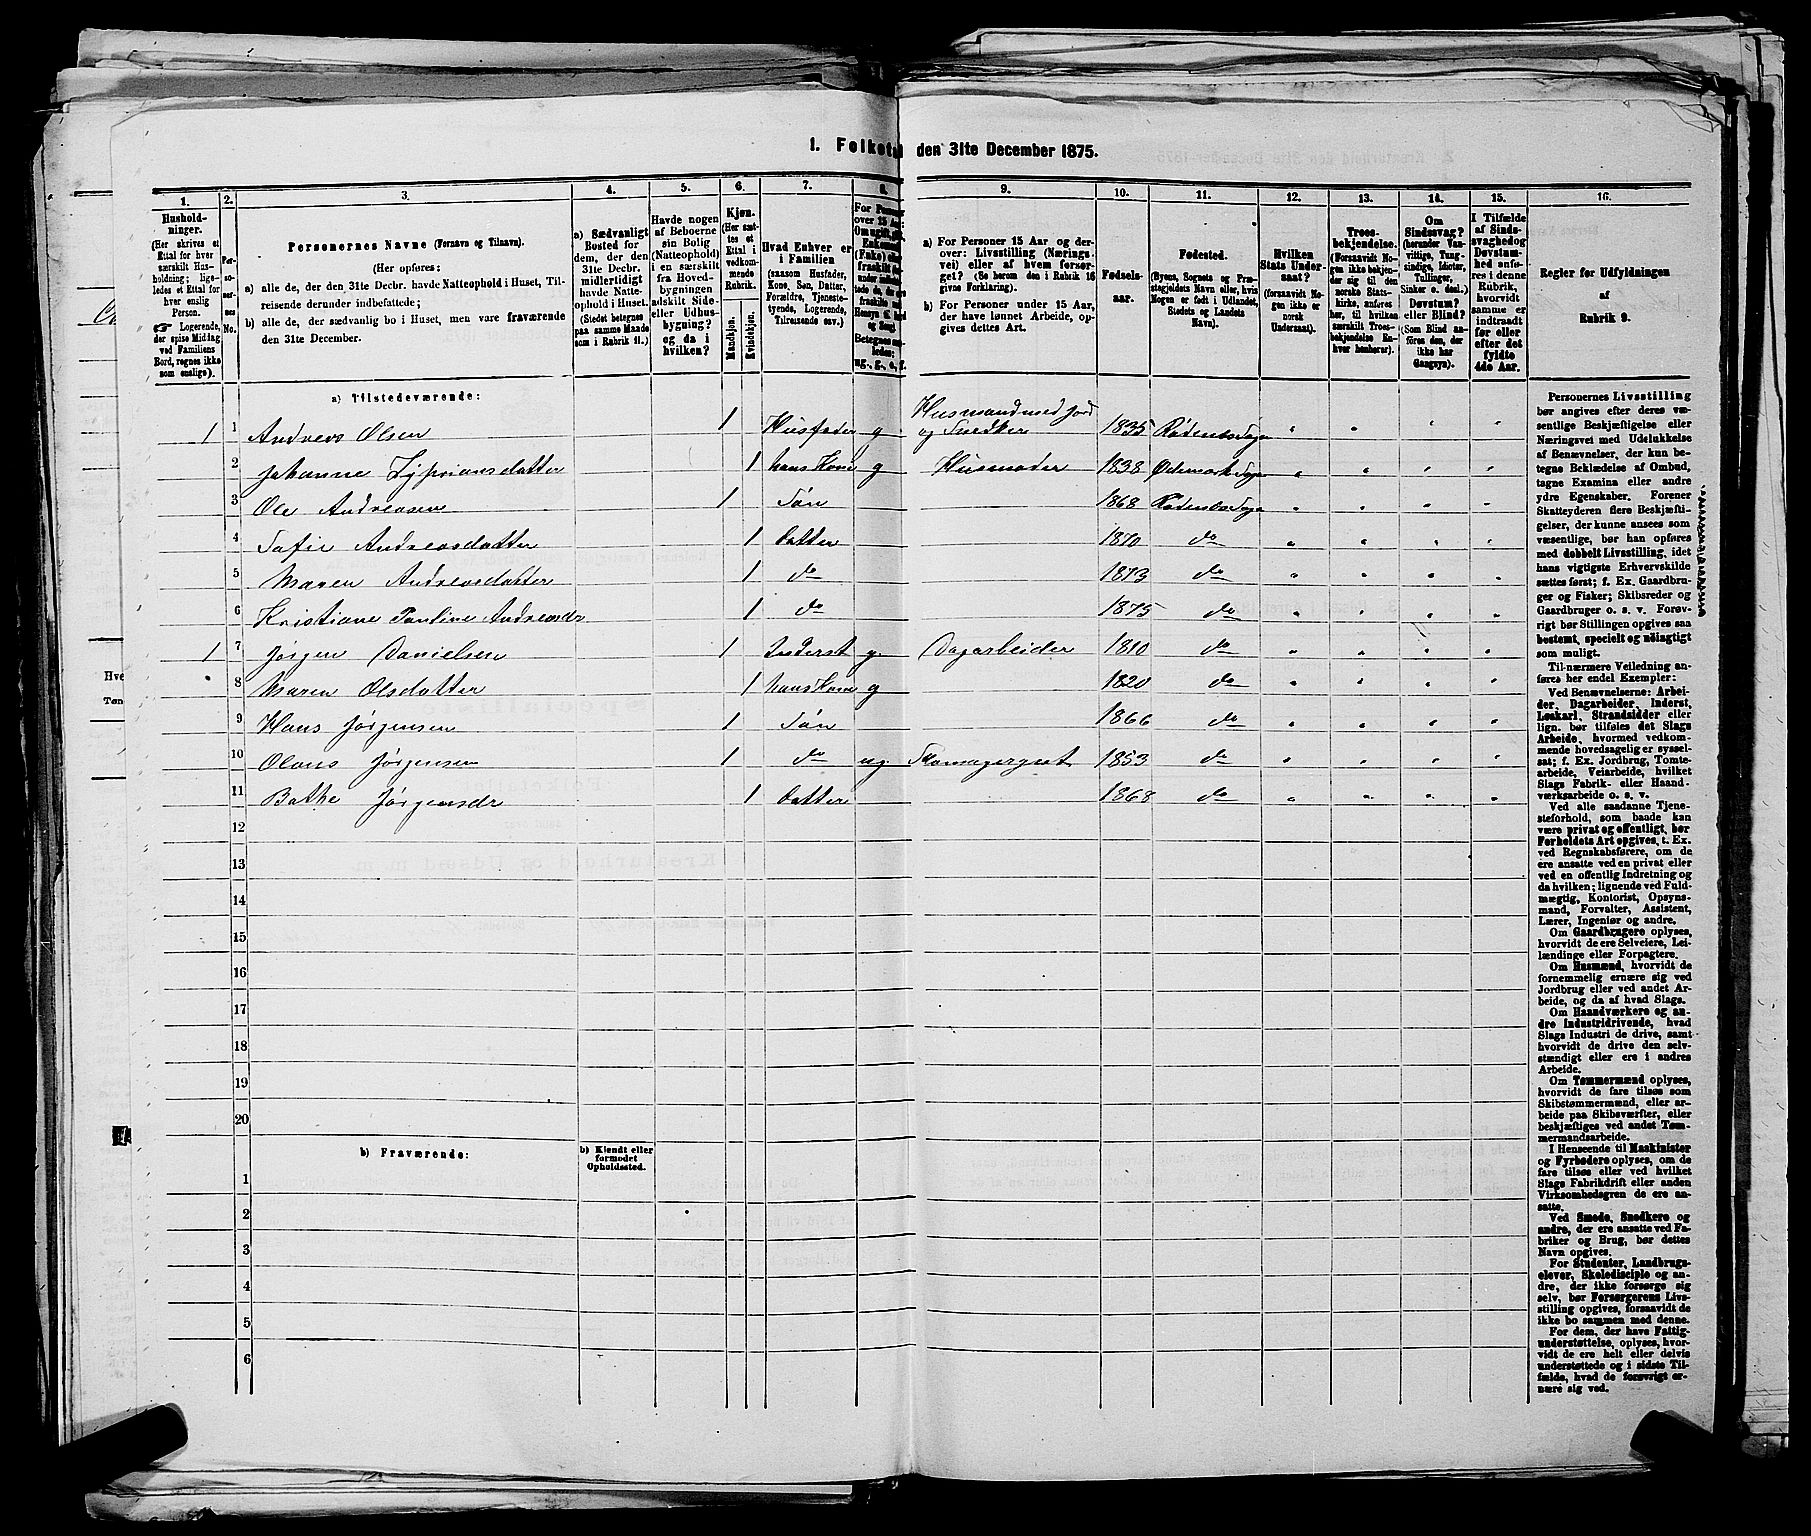 1. Folketal den 31te December 1875.
1. 2. 3. 4. 5. 6. 7. 8. 9. 10. 11. 12. 13. 14. 15. 16.
Hushold-
ninger.
(Her skrives et
Ettal for hver
særskilt Hus-
holdning; lige-
ledes et Ettal
for hver
enslig
Person.
☞ Logerende,
der spise Middag
ved Familiens
Bord, regnes ikke
som enslige).
Per-
so-
ner-
nes
No.
Personernes Navne (Fornavn og Tilnavn).
(Her opføres:
a) alle de, der den 31te Decbr. havde Natteophold i Huset, Til-
reisende derunder indbefattede;
b) alle de, der sædvanlig bo i Huset, men vare fraværende
den 31te December.
a) Sædvanligt
Bosted for
dem, der den
31te Decbr.
midlertidigt
havde Natte-
ophold i Huset.
(Stedet betegnes
paa samme Maade
som i Rubrik 11.)
Havde nogen
af Beboerne
sin Bolig
(Natteophold)
i en særskilt
fra Hoved-
bygningen
adskilt Side-
eller Udhus-
bygning?
og da i
hvilken?
Kjøn.
(Her sæt-
tes et
Ettal i
vedkom-
mende
Rubrik.
Mandkjøn.
Kvindekjøn.
Hvad Enhver er
i Familien
(saasom Husfader,
Kone, Søn, Datter,
Forældre, Tjeneste-
tyende, Logerende,
Tilreisende osv.)
a) For Personer 15 Aar og der-
over: Livsstilling (Nærings-
vei) eller af hvem forsør-
get? (Se herom den i Rubrik 16
givne Forklaring).
b) For Personer under 15 Aar,
der have lønnet Arbeide, op-
gives dettes Art.
Fødsels-
aar.
Fødested.
(Byens, Sognets og Præ-
stegjeldets Navn eller, hvis
Nogen er født i Udlandet,
Stedets og Landets
Navn).
Hvilken
Stats Under-
saat?
(forsaavidt No-
gen ikke er
norsk
Undersaat).
Troes-
bekjendelse.
(Forsaavidt No-
gen ikke bekjen-
der sig til den
norske Stats-
kirke, anføres
her, til hvilken
særskilt Troes-
bekjendelse En-
hver henhører).
Om
Sindssvag?
(herunder Van-
vittige, Tung-
sindige, Idioter,
Tullinger,
Sinker o. desl.)
Døvstum?
eller Blind?
(Som Blind an-
føres den, der
ikke har
Gangsyn).
I Tilfælde
af Sinds-
svaghed og
Døvstum-
hed anfø-
res i denne
Rubrik,
hvorvidt
samme er
indtraadt
før eller
efter det
fyldte
4de Aar.
Regler for Udfyldningen
af
Rubrik 9.
a) Tilstedeværende:
1 1 Andreas Olsen 1 Husfader g Husmand med jord
og Snedker 1835 Rødenes Sogn
2 Johanne Zypriansdatter 1 hans Kone g Husmoder 1838 Ødemark Sogn
3 Ole Andreasen 1 Søn 1868 Rødenes Sogn
4 Sofie Andreasdatter 1 Datter 1870 do
5 Maren Andreasdatter 1 do 1873 do
6 Kristiane Pauline Andreasdr 1 do 1875 do
1 7 Jørgen Danielsen 1 Inderst g Dagarbeider 1810 do
8 Maren Olsdatter 1 hans Kone g 1820 do
9 Hans Jørgensen 1 Søn 1866 do
10 Olaus Jørgensen 1 do ug Skomagergut 1853 do
11 Bathe Jørgensdr 1 Datter 1868 do
12
13
14
15
16
17
18
19
20
b) Fraværende:
b) Kjendt eller
formodet
Opholdssted.
1
2
3
4
5
6
Personernes Livsstilling
bør angives efter deres væ-
sentlige Beskjæftigelse eller
Næringsvei med Udelukkelse
af Benævnelser, der kun be-
tegne Beklædelse af Ombud,
tagne Examina eller andre
ydre Egenskaber. Forener
Skatteyderen flere Beskjæfti-
gelser, der kunne ansees som
væsentlige, bør han opføres
med dobbelt Livsstilling, idet
hans vigtigste Erhvervskilde
sættes først; f. Ex. Gaardbru-
ger og Fisker; Skibsreder og
Gaardbruger o. s. v. Forøv-
rigt bør Stillingen opgives saa
bestemt, specielt og nøiagtigt
som muligt.
Til nærmere Veiledning an-
føres her endel Exempler:
Ved Benævnelserne: Arbei-
der, Dagarbeider, Inderst,
Løskarl, Strandsidder eller
lign. bør tilføies det Slags
Arbeide, hvormed vedkom-
mende hovedsagelig er syssel-
sat; f. Ex. Jordbrug, Tomte-
arbeide, Veiarbeide, hvilket
Slags Fabrik- eller Haand-
værksarbeide o. s. v.
Ved alle saadanne Tjene-
steforhold, som baade kan
være privat og offentligt, bør
Forholdets Art opgives, t. Ex.
ved Regnskabsførere, om de
ere ansatte ved en privat eller
ved en offentlig Indretning og
da hvilken; lignende ved Fuld-
mægtig, Kontorist, Opsyns-
mand, Forvalter, Assistent,
Lærer, Ingeniør og andre.
Om Gaardbrugere oplyses,
hvorvidt de ere Selveiere, Lei-
lændinge eller Forpagtere.
Om Husmænd, hvorvidt de
fornemmelig ernære sig ved
Jordbrug eller ved andet Ar-
beide, og da af hvad Slags.
Om Haandværkere og an-
dre Industridrivende, hvad
Slags Industri de drive, samt
hvorvidt de drive den selv-
stændigt eller ere i andres
Arbeide.
Om Tømmermænd oplyses,
hvorvidt de fare tilsøs som
Skibstømmermænd, eller ar-
beide paa Skibsværfter, eller
beskjæftiges ved andet Tøm-
mermandsarbeide.
I Henseende til Maskinister
og Fyrbødere oplyses, om de
fare tilsøs eller ved hvilket
Slags Fabrikdrift eller anden
Virksomhedsgren de ere an-
satte.
Ved Smede, Snedkere og
andre, der ere ansatte ved Fa-
briker og Brug, bør dettes
Navn opgives.
For Studenter, Landbrugs-
elever, Skoledisciple og an-
dre, der ikke forsørge sig
selv, bør Forsørgerens Livs-
stilling opgives, forsaavidt de
ikke bo sammen med denne.
For dem, der have Fattig-
understøttelse, oplyses, hvor-
vidt de ere helt eller delvis
understøttede og i sidste Til-
fælde, hvad de forøvrigt er-
nære sig ved.